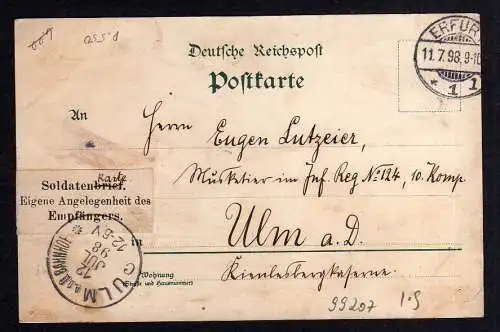 Deutsche Reichspost
Postkarte
ERFURT
11.7.98.9-10
* 1 1
An
Herrn Eugen Lutzeier,
Musketier im Inf. Reg No 124, 10. Komp
in
Ulm a. D.
Wohnung
(Straße und Hausnummer)
Kienlesbergkaserne.
Karte
Soldatenbrief.
Eigene Angelegenheit des
Empfängers.
ULM BAHNHOF
12
JUL
98
12-6V
99207